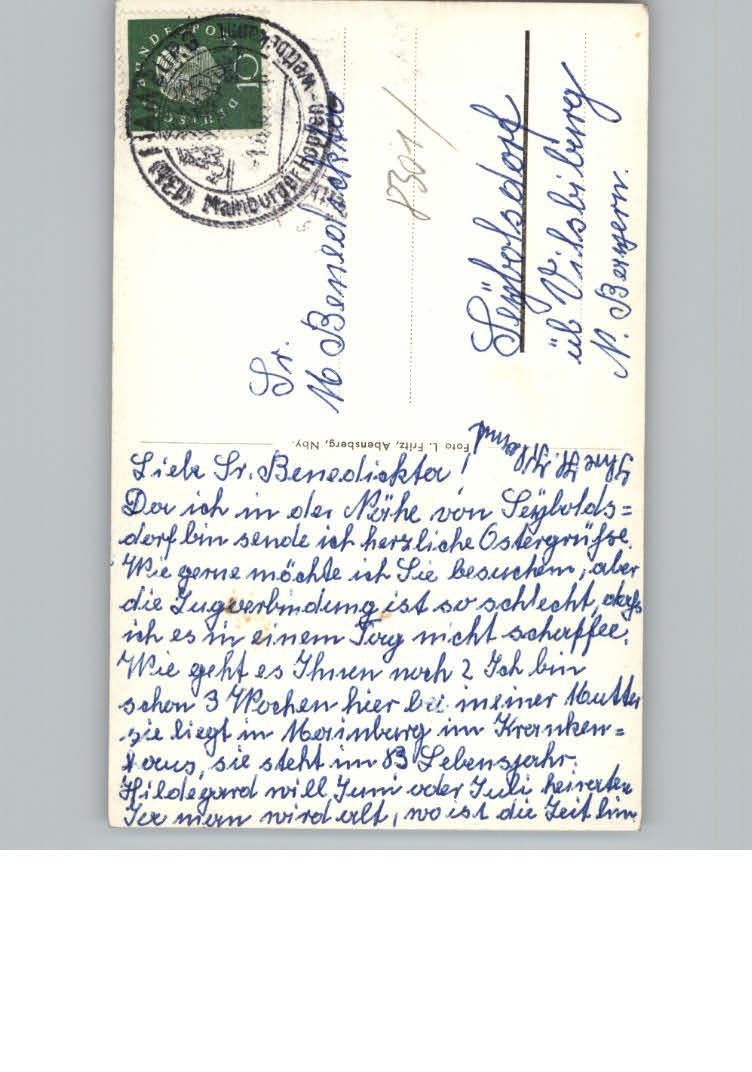 Liebe Sr. Benedickta!
Da ich in der Nähe von Seÿbolds=
dorf bin sende ich herzliche Ostergrüsse.
Wie gerne möchte ich Sie besuchen, aber
die Zugverbindung ist so schlecht, dass
ich es in einem Tag nicht schaffee.
Wie geht es Ihnen noch? Ich bin
schon 3 Wochen hier bei meiner Mutter
sie liegt in Mainburg im Kranken=
haus, sie steht im 83 Lebensjahr.
Hildegard will Juni oder Juli heiraten
Ja man wird alt, wo ist die Zeit hin
Ihre
Foto L. Fritz, Abensberg, Nby.
Sr.
M Benedickta
8301/
Seÿbolsdorf
üb Vilsbiburg
N. Bayern.
DEUTSCHE BUNDESPOST
10
(13a) MAINBURG
Mainburger Hopfen - weltbekannt